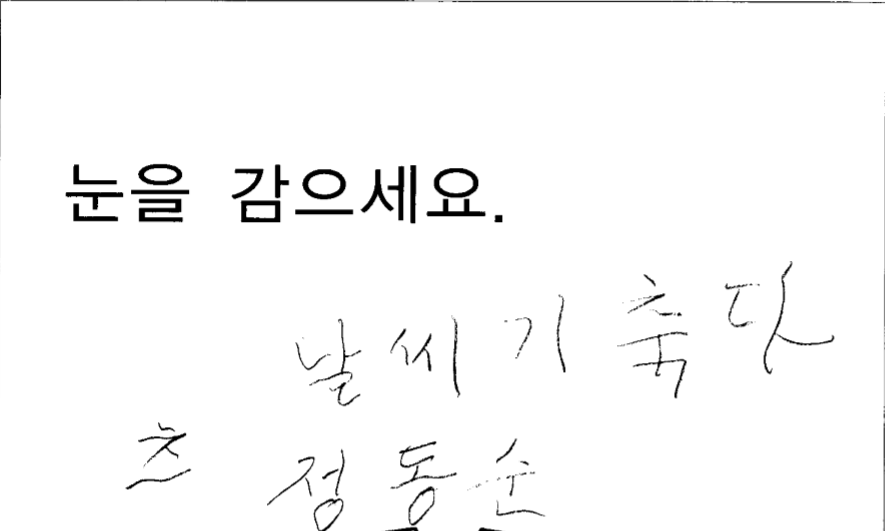 눈을 감으세요.
날씨기 축다
츠 정동순